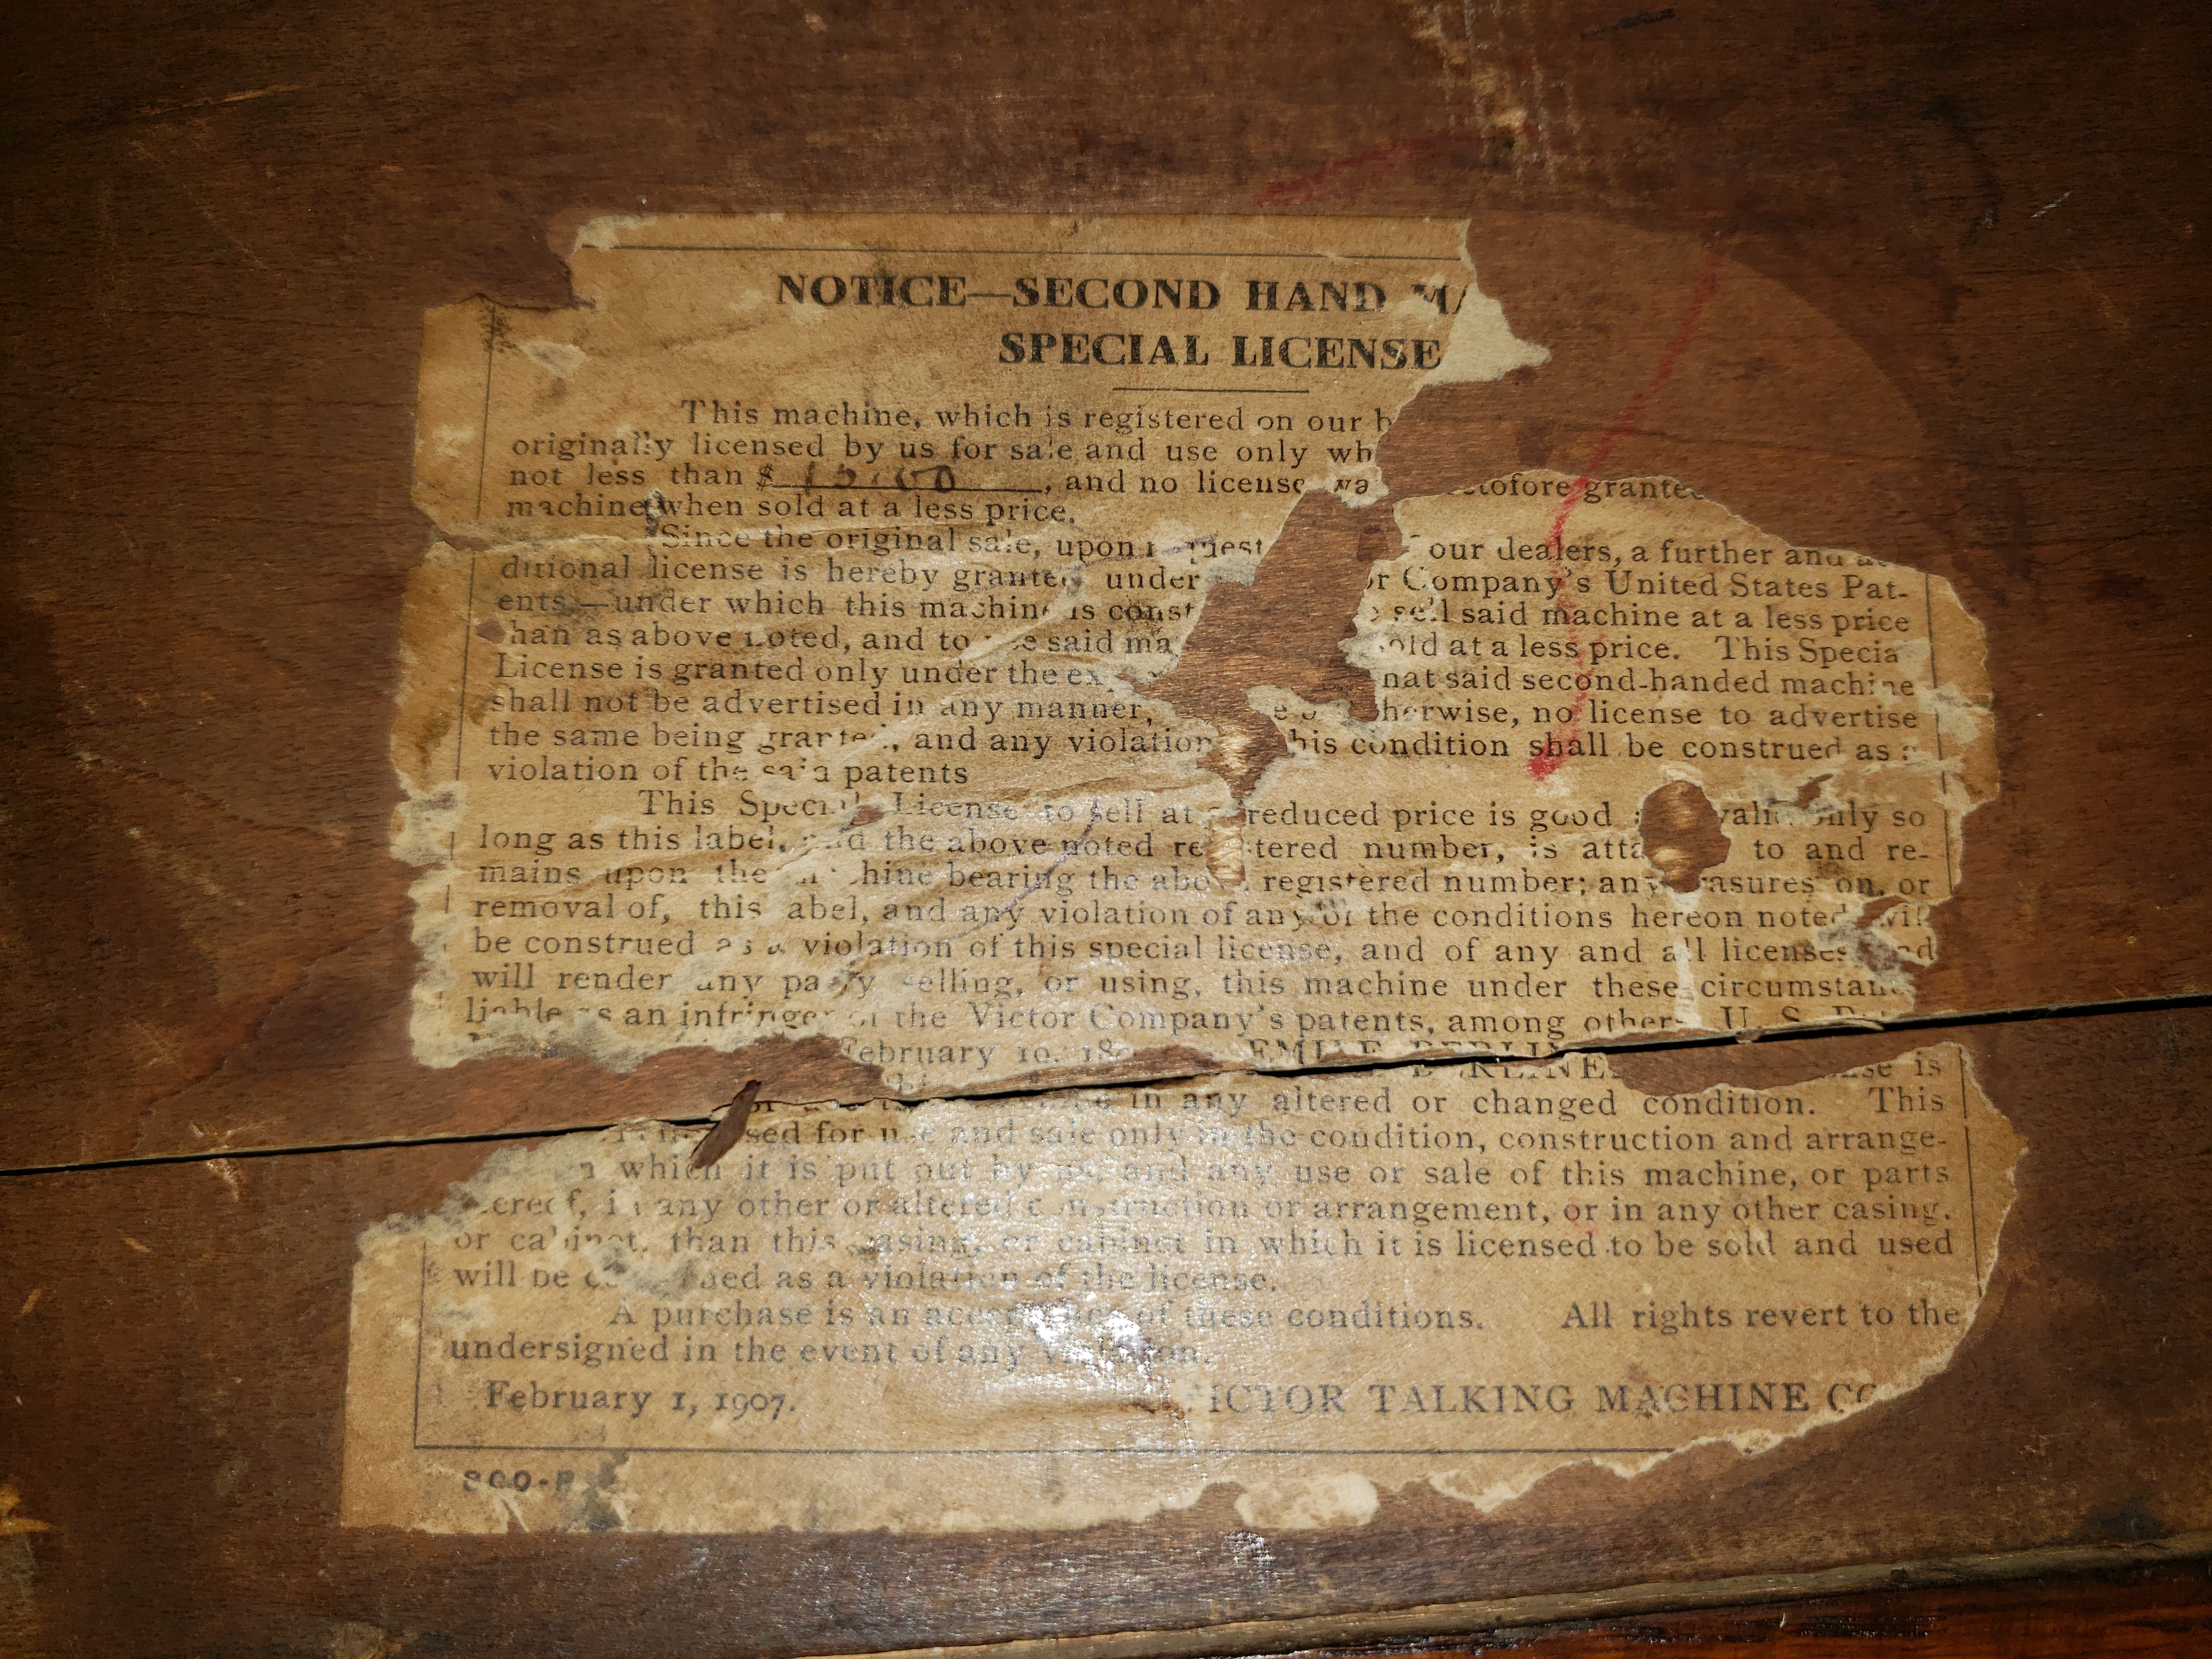 NOTICE—SECOND HAND
SPECIAL LICENSE
This machine, which is registered on our
originally licensed by us for sale and use only
not less than $ , and no license
machine when sold at a less price.
Since the original sale, upon our dealers, a further and
ditional license is hereby under Company's United States Pat-
ents,—under which this machine is sell said machine at a less price
as above noted, and to said at a less price. This
License is granted only under the said second-handed machine
shall not be advertised in any manner, no license to advertise
the same being and any violation condition shall be construed as
violation of the said patents
This Special License to sell at reduced price is good only so
long as this label, the above noted number, is to and re-
mains upon the bearing the registered number; any on, or
removal of, this and any violation of any of the conditions hereon noted
be construed as a violation of this special license, and of any and all licenses
will render any party selling, or using, this machine under these
liable as an infringer of the Victor Company's patents, among U. S.
February 10, EMILE
is
in any altered or changed condition. This
for use and sale only in the condition, construction and arrange-
which it is put out by us, and any use or sale of this machine, or parts
in any other or altered construction or arrangement, or in any other casing.
or cabinet, than this casing, or cabinet in which it is licensed to be sold and used
will be as a violation of the license.
A purchase is an of these conditions. All rights revert to the
undersigned in the event of any violation.
February 1, 1907. TALKING MACHINE